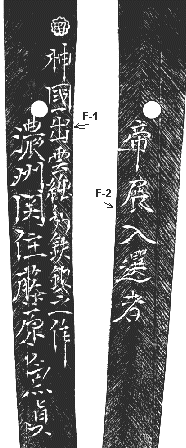 神國出雲純砂鉄鍛之作
濃州関住藤原兼貞
F-1
帝展入選者
F-2